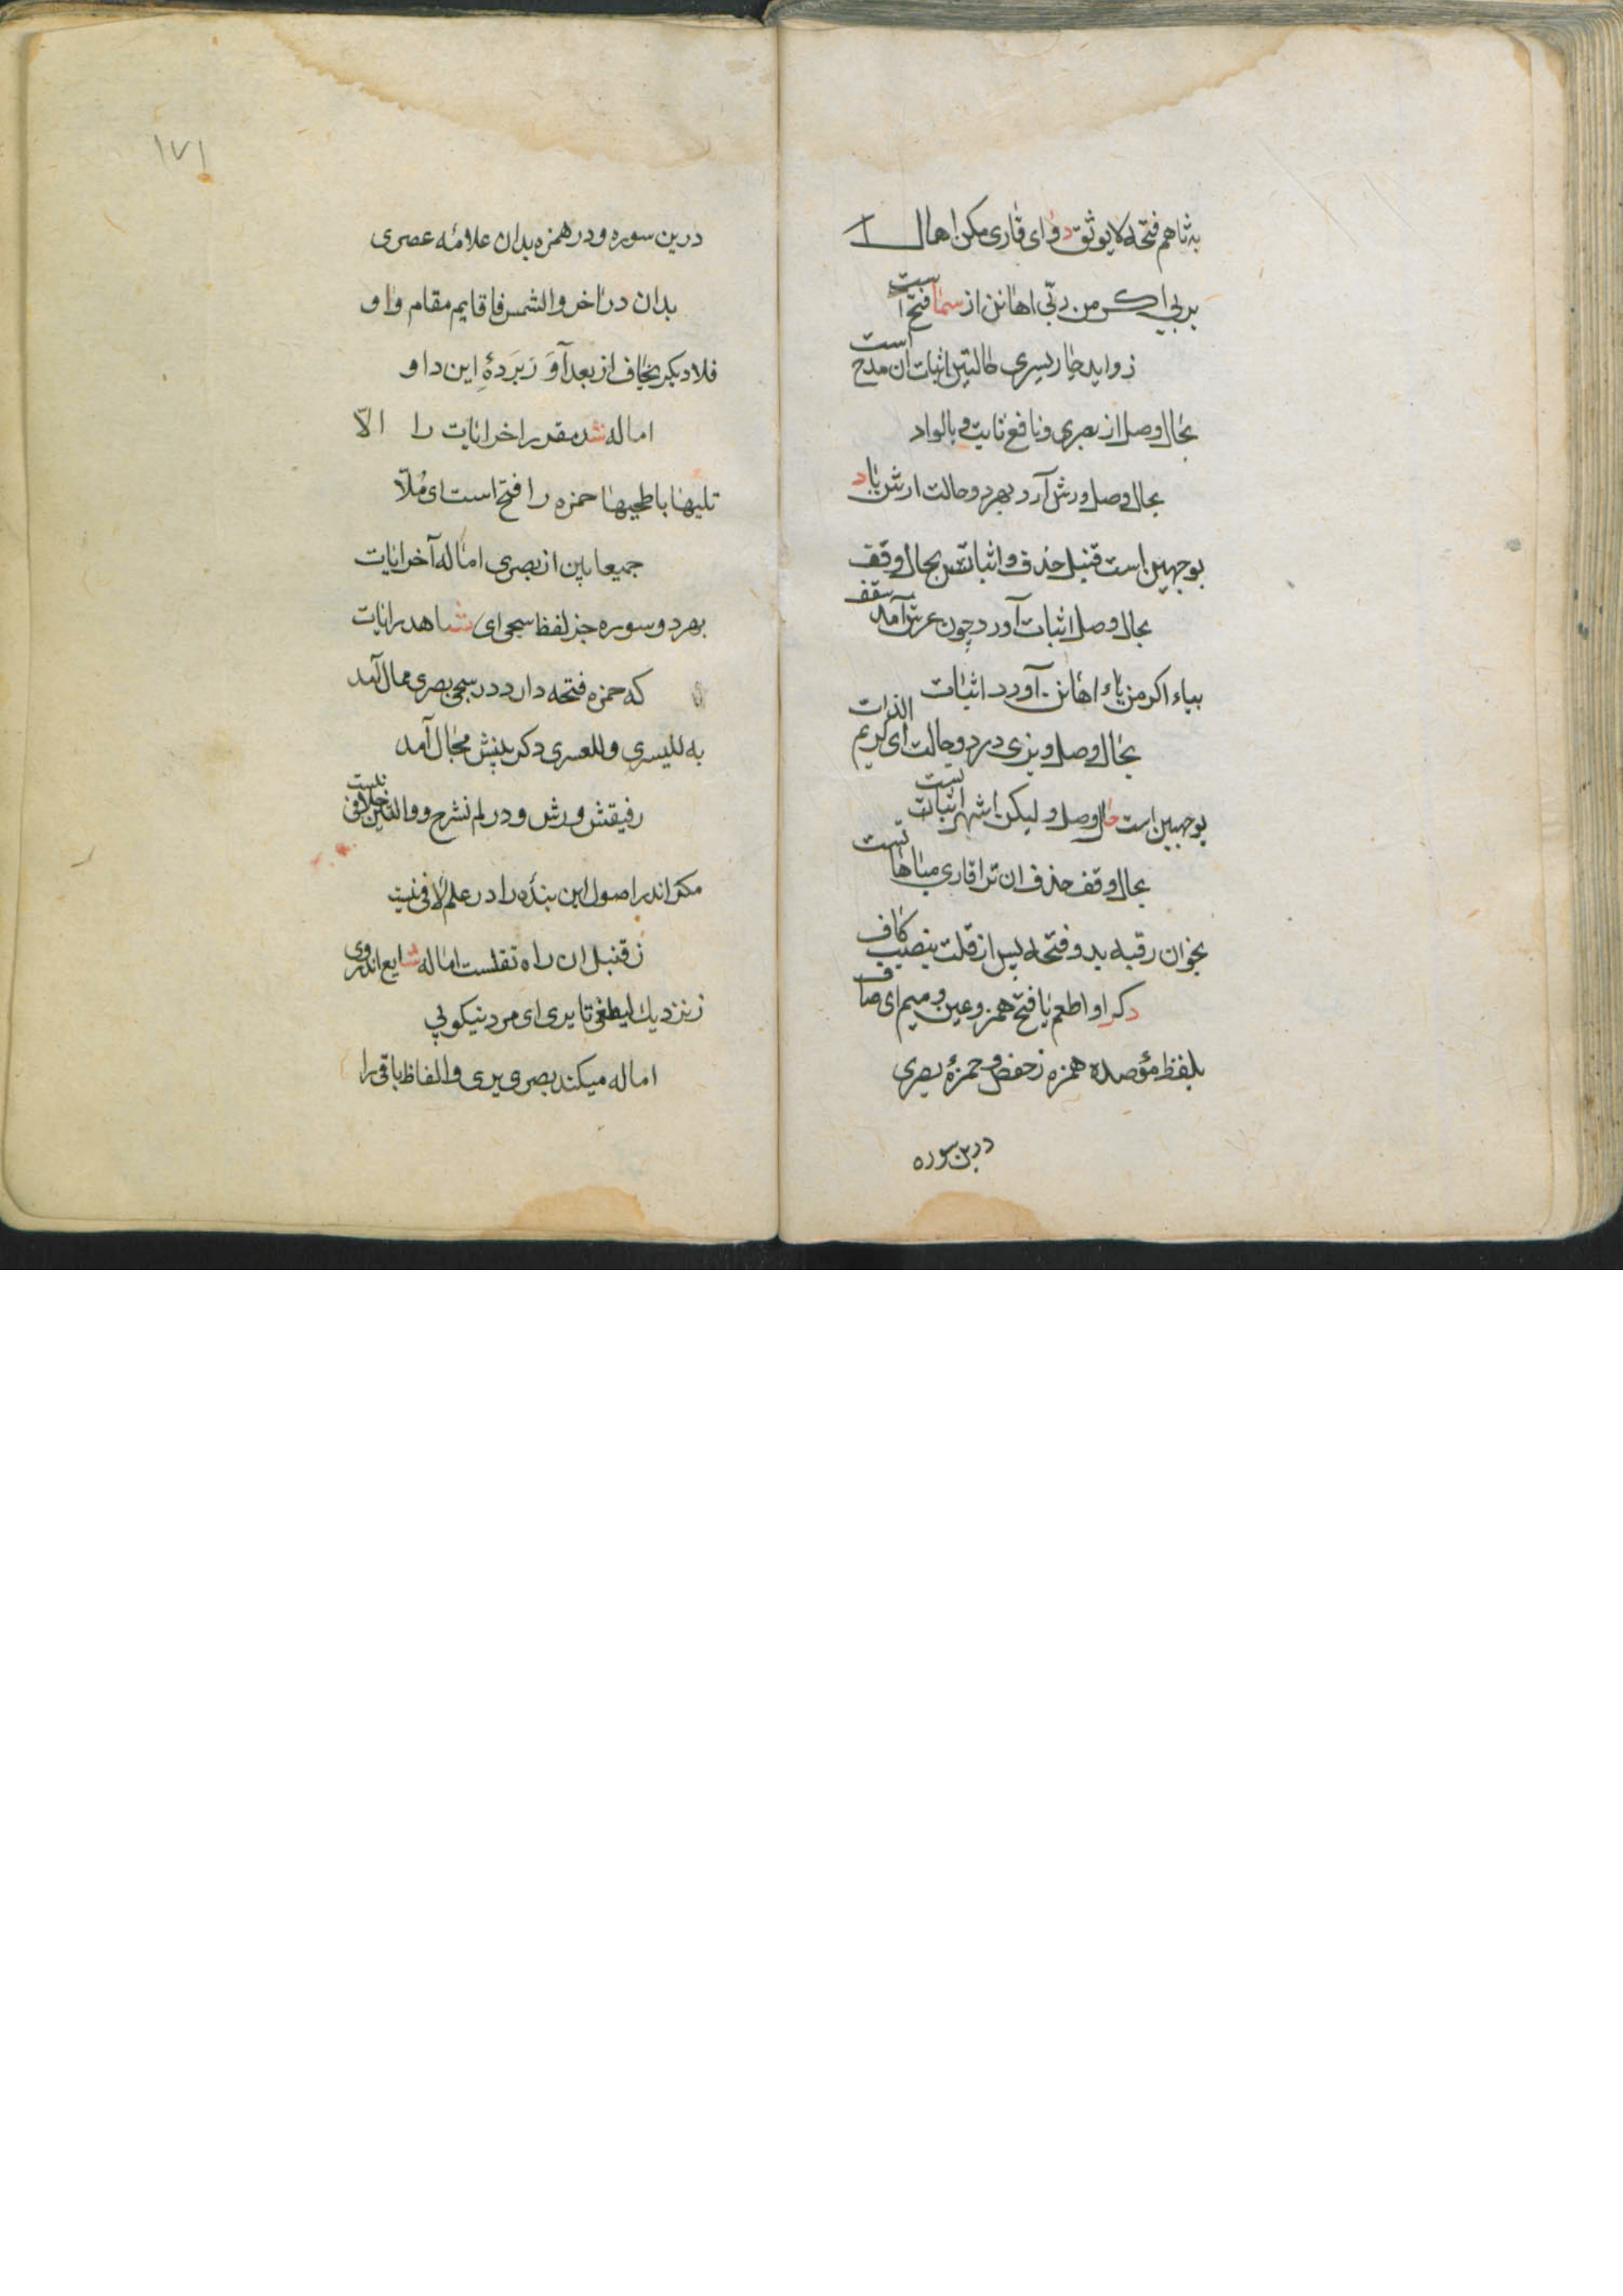 به ثا هم فتحه لا یوثق دو ای قاری مکن اهمال
بربی اکرمن ربی اهانن از سما فتح است
زواید چار یسری حالتین اثبات ان مدح است
بحال وصل از بصری و نافع ثابت و بالواد
بحال وصل ورش آرد بهر دو حالت ارش یاد
بوجهین است قنبل حذف و اثباتش بحال وقف
بحال وصل اثبات آورد چون عرش آمد سقف
بیاء اکرمن یاء اهانن آورد اثبات
بحال وصل و بزی در دو حالت ای کریم الذات
بوجهین است حال وصل و لیکن اشهر اثباتست
بحال وقف حذف ان ترا قاری مباهاتست
بخوان رقبه بدو فتحه پس از فلت بنصب کاف
دکر او اطعم یا فتح همز و عین و میم ای صاف
بلفظ مؤصده همزه ز حفص و حمزۀ بصری
درین سوره
۱۷۱
درین سوره و در همزه بدان علامۀ عصری
بدان در آخر والشمس فا قایم مقام واو
فلا دیکر یخاف از بعد آو زبر ده این داو
اماله شد مقرر اخر ایات را الا
تلیها با طحیها حمزه را فتح است ای ملا
جمیعا بین از بصری اماله آخر ایات
بهر دو سوره جز لفظ سجی ای شاهد رایات
که حمزه فتحه دارد در سجی بصری ممال آمد
به للیسری و للعسری دکر بینش مجال آمد
رفیقش ورش و در لم نشرح و والتین خلافی نیست
مکر اندر اصول این بنده را در علم لافی نیست
ز قنبل ان راه نقلست اماله شایع اندر وی
ز نزدیك لیطغی تا یری ای مرد نیکو پی
اماله میکند بصری یری و الفاظ باقی را